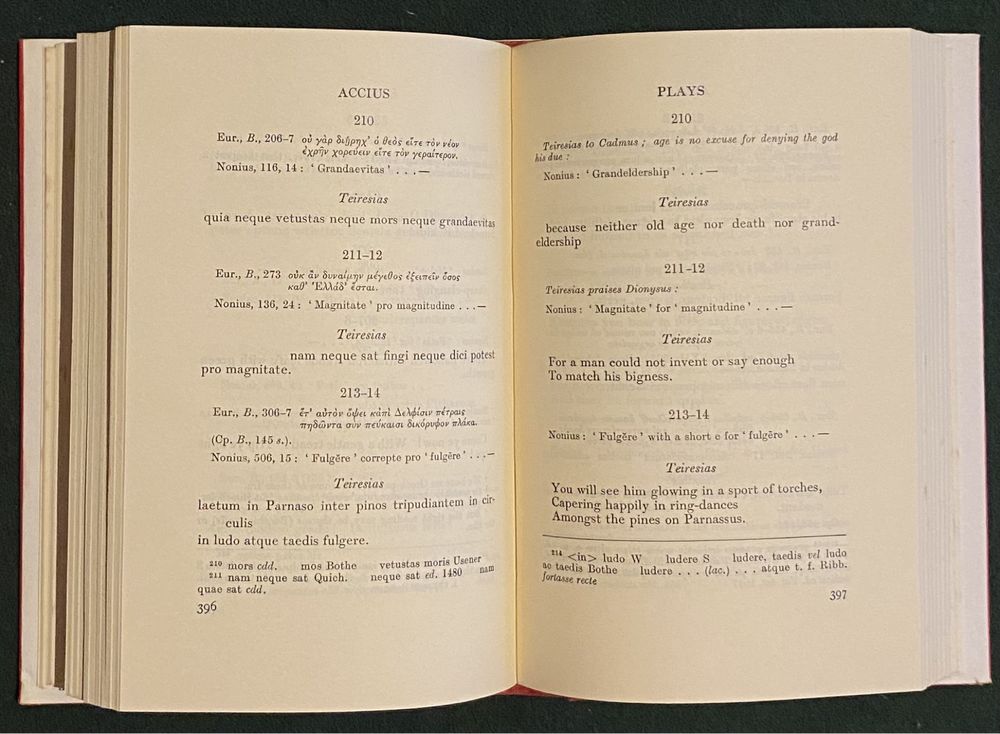 ACCIUS
210
Eur., B., 206–7 οὐ γὰρ διῄρηχ’ ὁ θεὸς εἴτε τὸν νέον
ἐχρῆν χορεύειν εἴτε τὸν γεραίτερον.
Nonius, 116, 14 : ‘ Grandaevitas ’ . . . —
Teiresias
quia neque vetustas neque mors neque grandaevitas
211–12
Eur., B., 273 οὐκ ἂν δυναίμην μέγεθος ἐξειπεῖν ὅσος
καθ’ Ἑλλάδ’ ἔσται.
Nonius, 136, 24 : ‘ Magnitate ’ pro magnitudine . . . —
Teiresias
nam neque sat fingi neque dici potest
pro magnitate.
213–14
Eur., B., 306–7 ἔτ’ αὐτὸν ὄψει κἀπὶ Δελφίσιν πέτραις
πηδῶντα σὺν πεύκαισι δικόρυφον πλάκα.
(Cp. B., 145 s.).
Nonius, 506, 15 : ‘ Fulgĕre ’ correpte pro ‘ fulgēre ’ . . . —
Teiresias
laetum in Parnaso inter pinos tripudiantem in cir-
culis
in ludo atque taedis fulgere.
210 mors cdd. mos Bothe vetustas moris Usener
211 nam neque sat Quich. neque sat ed. 1480 nam
quae sat cdd.
396
PLAYS
210
Teiresias to Cadmus ; age is no excuse for denying the god
his due :
Nonius : ‘ Grandeldership ’ . . . —
Teiresias
because neither old age nor death nor grand-
eldership
211-12
Teiresias praises Dionysus :
Nonius : ‘ Magnitate ’ for ‘ magnitudine ’ . . . —
Teiresias
For a man could not invent or say enough
To match his bigness.
213–14
Nonius : ‘ Fulgĕre ’ with a short e for ‘ fulgēre ’ . . . —
Teiresias
You will see him glowing in a sport of torches,
Capering happily in ring-dances
Amongst the pines on Parnassus.
214 <in> ludo W ludere S ludere, taedis vel ludo
ac taedis Bothe ludere . . . (lac.) . . . atque t. f. Ribb.
fortasse recte
397